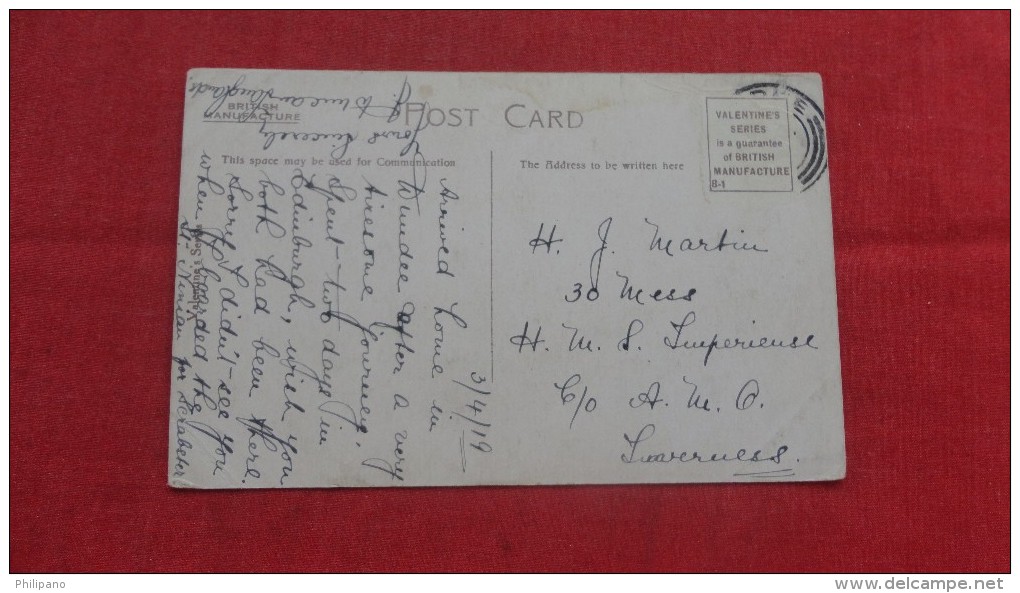 BRITISH
MANUFACTURE
POST CARD
This space may be used for Communication
The Address to be written here
VALENTINE'S
SERIES
is a guarantee
of BRITISH
MANUFACTURE
B-1
3/4/19
Arrived home in
Dundee after a very
tiresome journey.
Spent two days in
Edinburgh, wish you
both had been there.
Sorry I didn't see you
when I boarded the
St. Ninian for Scrabster
Yours Sincerely
Valentine's Series
H. J. Martin
30 Mess
H. M. S. Imperieuse
C/o A. M. O.
Inverness.
Philipano
www.delcampe.net